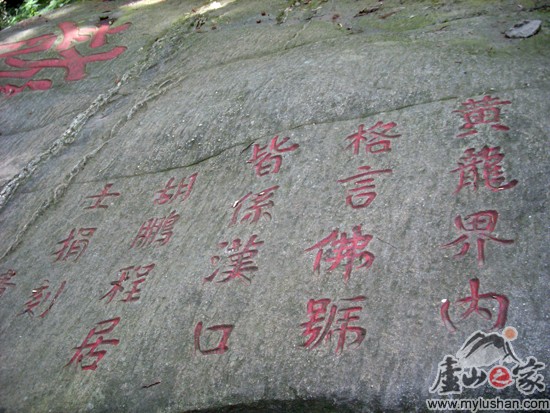 黄龍界内
格言佛號
皆係漢口
胡鵬程居
士捐刻
庐山之家
www.mylushan.com